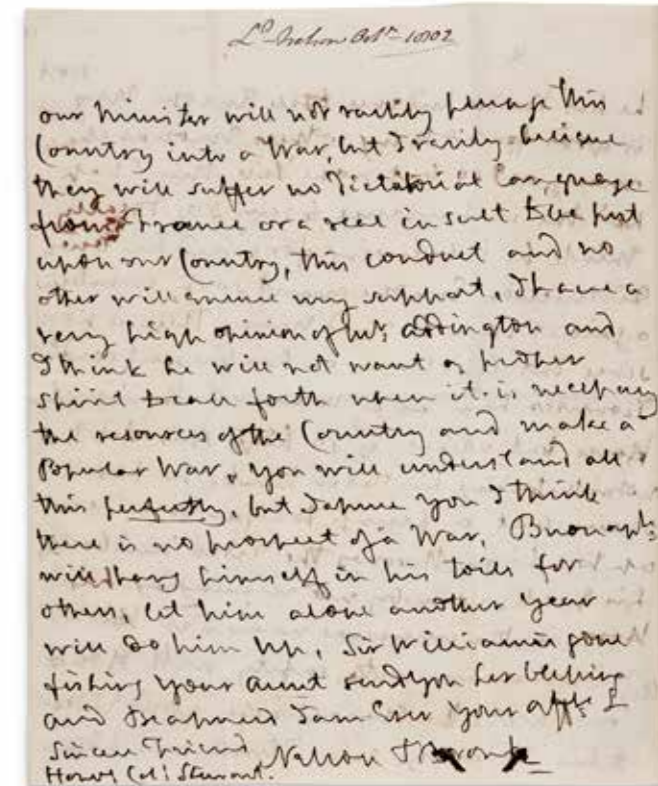 Ld. Nelson Octr. 1802
our Minister will not rashly plunge this
Country into a War, but I really believe
they will suffer no Dictatorial Language
from France or a real insult to be put
upon our Country, this conduct and no
other will ensure my support, I have a
very high opinion of Mr. Addington and
I think he will not want a proper
spirit to call forth when it is necessary
the resources of the Country and make a
Popular War, you will understand all
this perfectly, but I assure you I think
there is no prospect of a War, Buonapte.
will hang himself in his toils for
others, let him alone another year
will do him up, Sir William is gone
fishing your Aunt sends you her blessing
and I am Ever your affte. &
Sincere Friend
Nelson & Bronte
Honble. Col: Stewart.